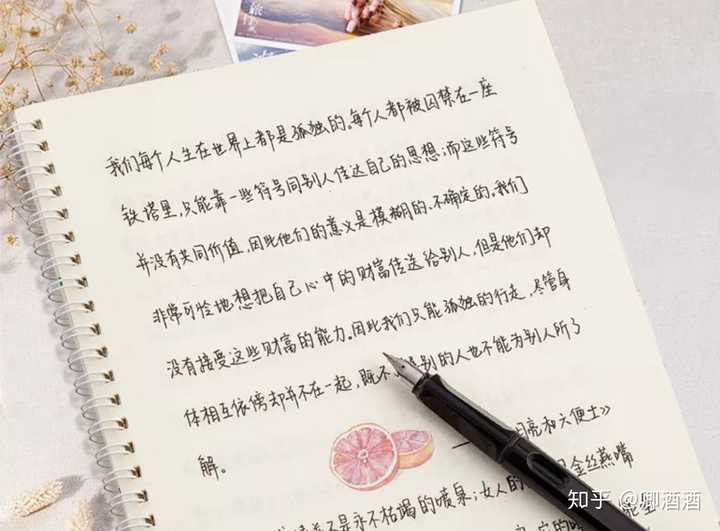 我们每个人生在世界上都是孤独的。每个人都被囚禁在一座
铁塔里,只能靠一些符号同别人传达自己的思想;而这些符号
并没有共同价值,因此他们的意义是模糊的、不确定的。我们
非常可怜地想把自己心中的财富传送给别人,但是他们却
没有接受这些财富的能力。因此我们只能孤独的行走,尽管身
体相互依傍却并不在一起,既不 别的人也不能为别人所了
解。
亮和六便士》
不是永不枯竭的喷泉;女人的 金丝燕嘴
知乎 @卿酒酒